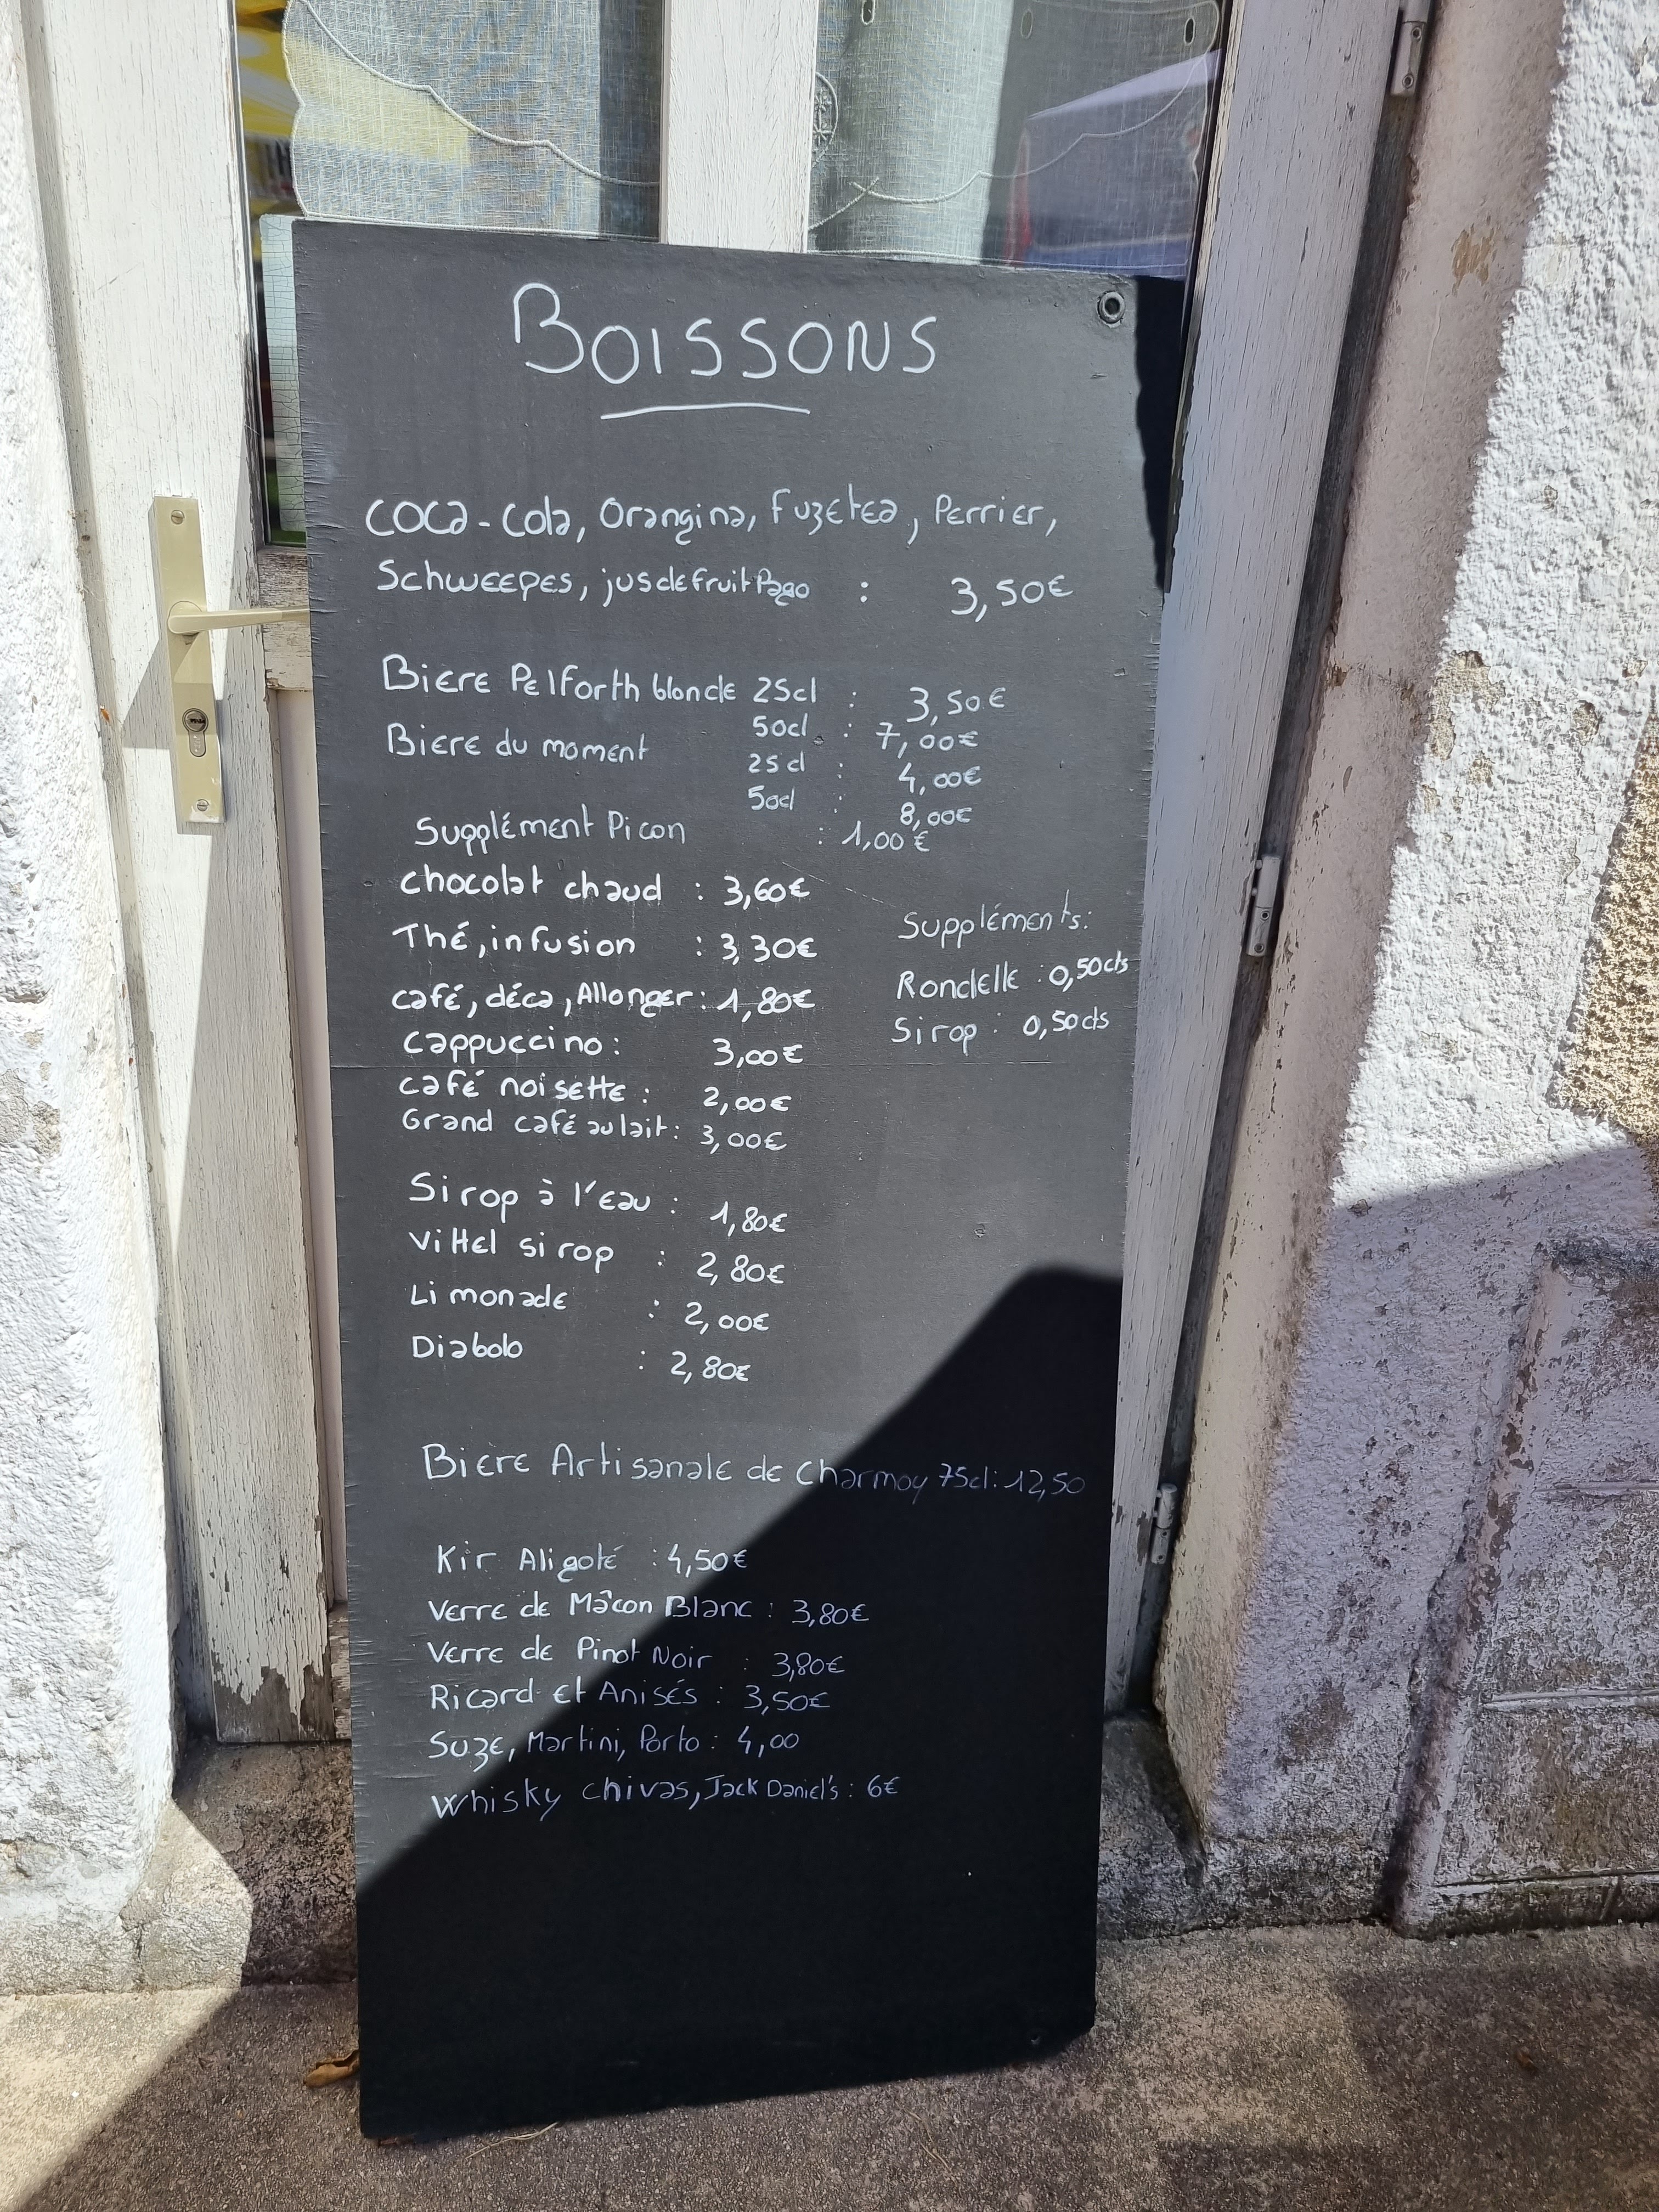 BOISSONS
coca-cola, Orangina, Fuzetea, Perrier,
Schweepes, jus de fruit Pago : 3,50€
Biere Pelforth blonde 25cl : 3,50€
50cl : 7,00€
Biere du moment 25cl : 4,00€
50cl : 8,00€
Supplément Picon : 1,00€
chocolat chaud : 3,60€
Thé, infusion : 3,30€
café, déca, Allonger : 1,80€
cappuccino : 3,00€
café noisette : 2,00€
Grand café au lait : 3,00€
Suppléments:
Rondelle : 0,50cts
Sirop : 0,50cts
Sirop à l'eau : 1,80€
Vittel sirop : 2,80€
Limonade : 2,00€
Diabolo : 2,80€
Biere Artisanale de Charmoy 75cl : 12,50
Kir Aligoté : 4,50€
Verre de Mâcon Blanc : 3,80€
Verre de Pinot Noir : 3,80€
Ricard et Anisés : 3,50€
Suze, Martini, Porto : 4,00
Whisky chivas, Jack Daniel's : 6€